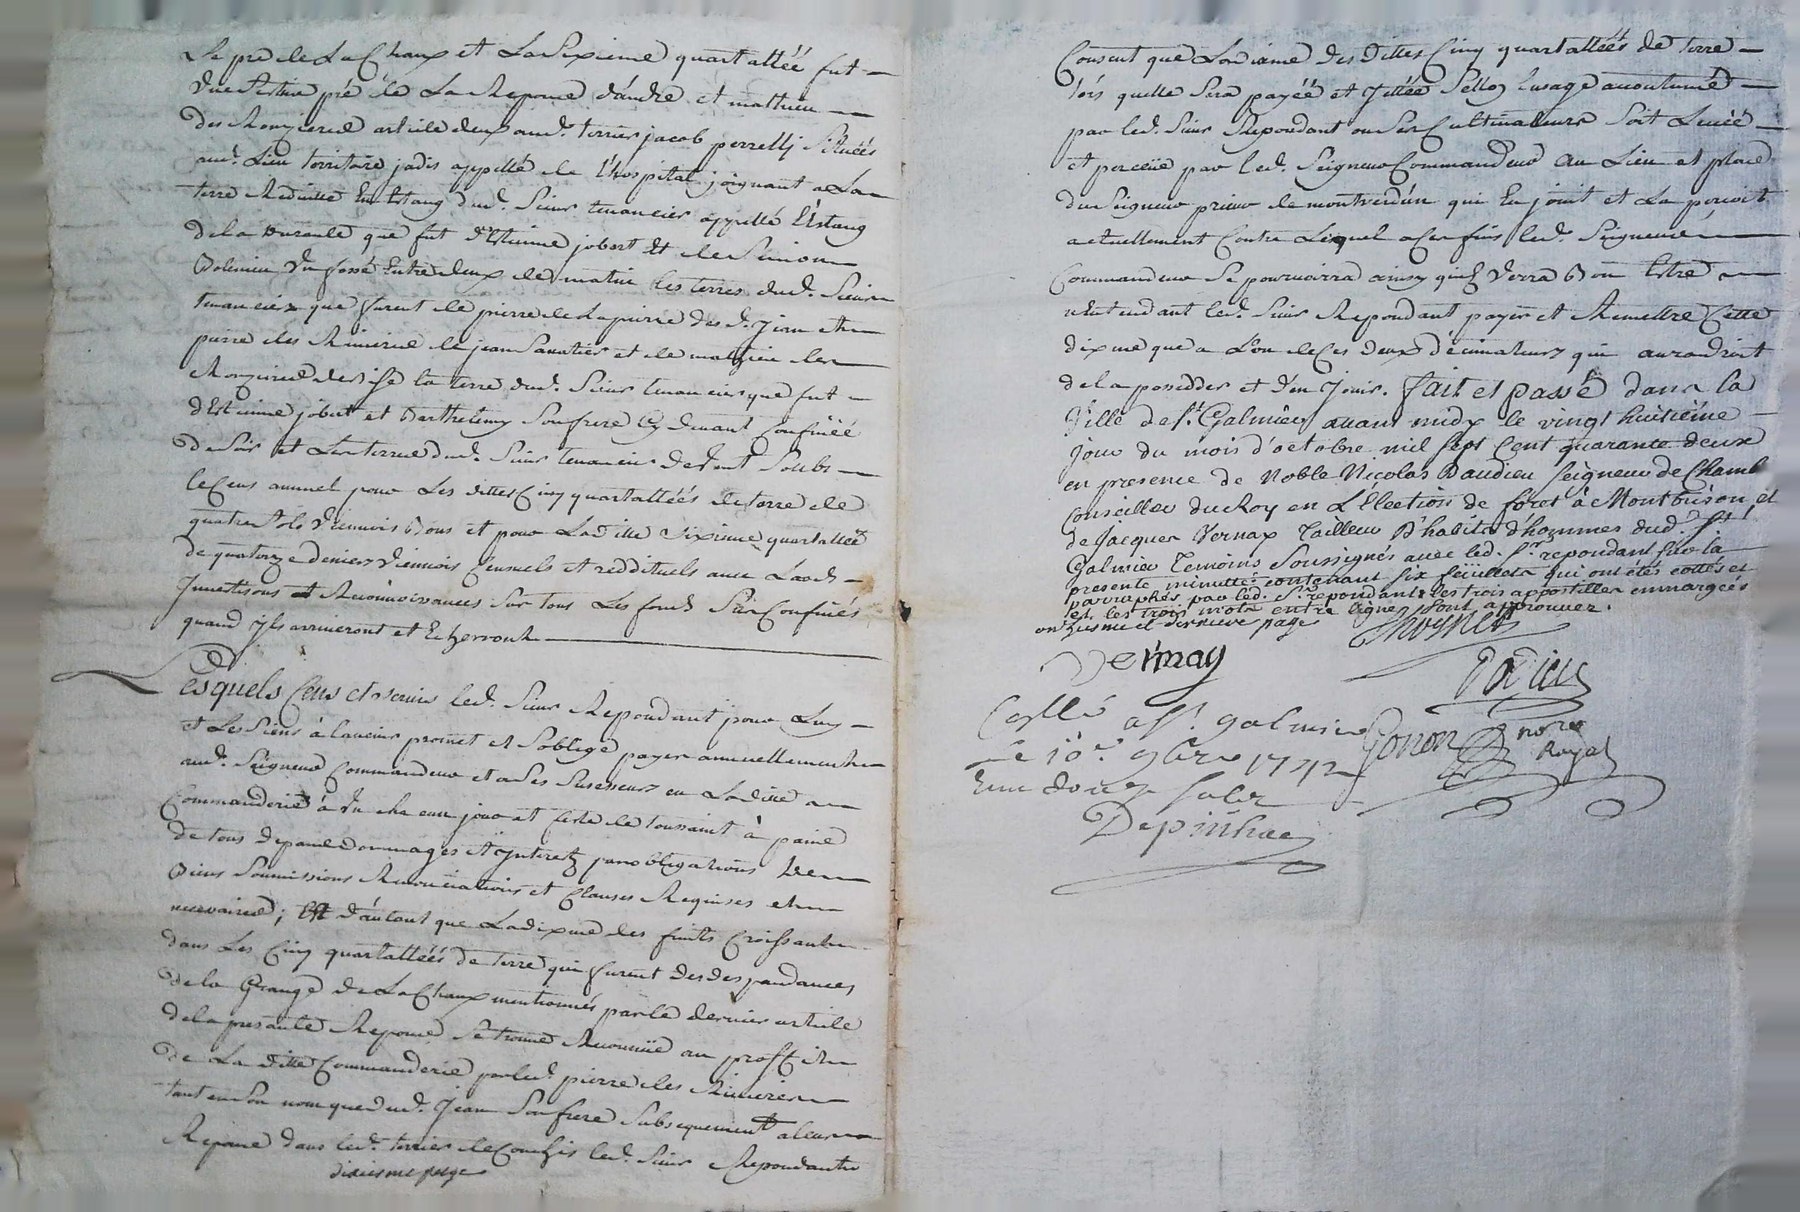 Le pré de La Chaux et La Sixieme quartallée fut
d'une Partie pré de La Reponce d'andré et mathieu
des Monziered article deux aud. terrier jacob perrelly Situées
aud. Lieu territoire jadis appellé de l'hospital joignant a La
terre Reduitte En Estang dud. Sieur tenancier appellé l'Estang
de la que fut d'Estienne jobert et de Simon
un fossé Entre deux de matin les terres dud. Sieur
tenancier que furent de pierre de La pierre des d. Jean et
pierre des Rivieres de jean et de mathieu des
Monziered de bise la terre dud. Sieur tenancier que fut
d'Estienne jobert et Barthelemy Son frere Cy devant Confinéé
de Soir et Les terres dud. Sieur tenancier de Vent Soubs
le Cens annuel pour Les dittes Cinq quartalléés de terre de
quatre Sols Viennois bons et pour La ditte Sixieme quartalléé
de quatorze deniers Viennois Censuels et reddituels avec Laods
Investisons et Reconnoissances Sur tous Les fonds Sus Confinés
quand ils arriveront et Echerront
Lesquels Cens et servis led. Sieur Repondant pour Luy
et Les Siens à l'avenir promet et S'oblige payer annuellement
aud. Seigneur Commandeur et a Ses Successeurs en La ditte
Commanderie à un chacun jour et feste de toussaint à peine
de tous depans dommages et Interetz par obligations de
Biens Soumissions Renonciations et Clauses Requises et
necessaires; Et d'autant que La dixme des fruits Croissants
dans Les Cinq quartalléés de terre qui furent des despandances
de la Grange de La Chaux mentionnés par le dernier article
de la presente Reponce Se trouve Reconnüe au proffit
de La ditte Commanderie par led. pierre des Rivieres
tant en Son nom que dud. Jean Son frere Subsequement a leur
Reponce dans led. terrier de led. Sieur Repondant
dixiesme page
Consent que La dixme des dittes Cinq quartalléés de terre
lors quelle Sera payéé et Jettéé Selon l'usage accoutumé
par led. Sieur Repondant ou Ses Cultivateurs Soit Levéé
et perceüe par led. Seigneur Commandeur au Lieu et place
du Seigneur prieur de montverdun qui En jouit et La perçoit
actuellement Contre Lequel a Ces fins led. Seigneur
Commandeur Se pourvoirra ainsy qu'il Verra bon Estre
n'Entendant led. Sieur Repondant payer et Remettre Cette
dixme que a L'un de Ces deux decimateurs qui aura droit
de la posedder et d'en Jouir. fait et passé dans la
Ville de St. Galmier avant midy le vingt huitiéme
jour du mois d'octobre mil sept cent quarante deux
en presence de Noble Nicolas Daudieu Seigneur de Chamb
Conseiller du Roy en L'Election de forêt à Montbrison, et
de Jacques Vernay Tailleur D'habits d'hommes dud. St.
Galmier Temoins Soussignés avec led. Sr. repondant sur la
presente minutte contenant six feüillets qui ont étés cottés et
parraphés par led. Sr. repondant les trois appostilles emmargéés
et les trois mots entre lignes sont approuvez.
onziesme et derniere page
Vernay
Collé a St. galmier
le 10e. 9bre 1742
Reçu douze sols
Depinhac
Gonon nore
Royal